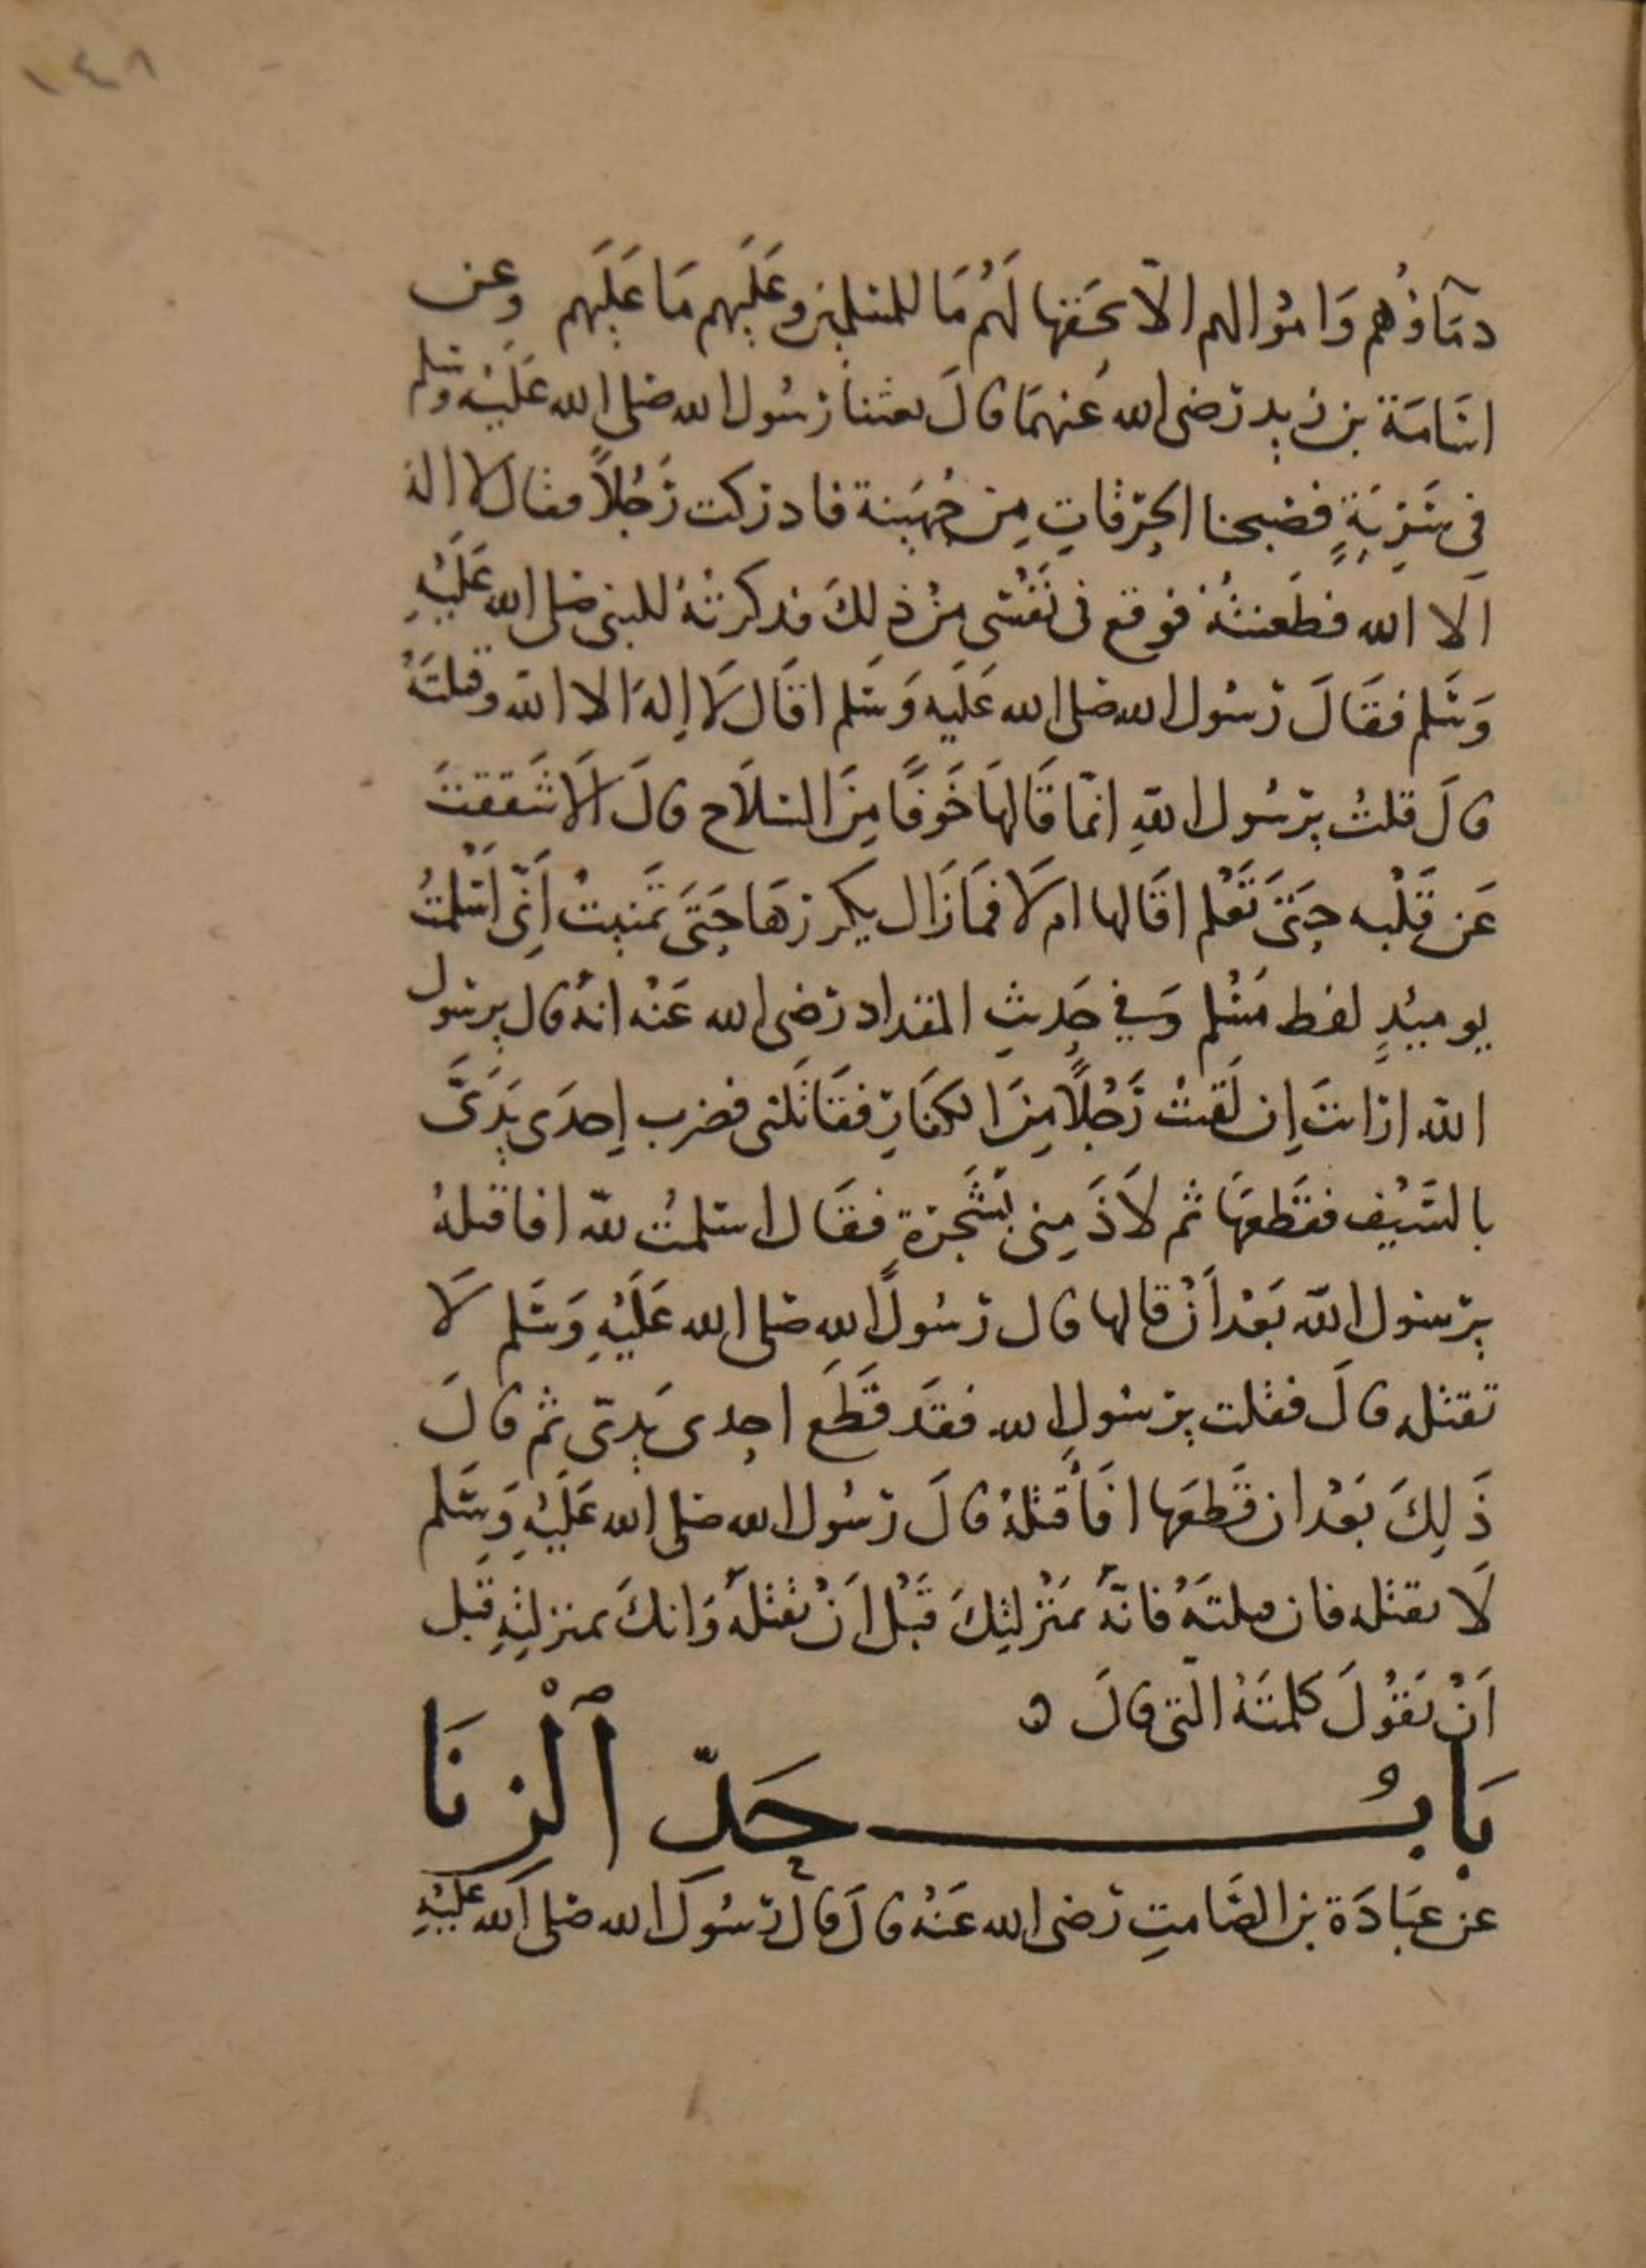 ١٤٨
دمَآؤُهم وَامْوالهم الّا بحَقها لَهُم مَا للمسلمِين وعَلَيهم مَا عَلَيهم وعن
اسَامَة بن زيدٍ رَضى الله عَنهمَا قالَ بعثنا رَسُول الله صَلى الله عَليْه وسَلم
فِي سَرِيةٍ فصَبحنا الحِرَقاتِ مِن جُهَينة فادركت رَجُلاً فقال لا اله
الا الله فطَعنتُهُ فوقع فى نَفْسى مِنْ ذلكَ فذكرتهُ للبنى صَلى الله عَلَيْهِ
وَسَلم فقَالَ رَسُول الله صَلى الله عَلَيه وَسَلم اقَال لَا اِلهَ الا الله وقتلتَهُ
قالَ قلتُ يرَسُول اللهِ انمّا قَالهَا خَوفًا مِنَ السِّلَاح قالَ اَلَا شَققتَ
عَن قَلْبه حَتىَّ تَعْلم اقَالها ام لَا فمَا زَال يكررهَا حَتىَّ تمَنيتُ اَنّى اَسْلمتُ
يوميئذٍ لفظ مُسْلم وَفي حَديثِ المقداد رَضى الله عَنْه انهُ قال يرسَول
الله ارَاتَ اِن لَقيتُ رَجُلاً مِنَ الكفَارِ فقَاتَلنى فضرب اِحدَى يَدَىَّ
بالسَّيْف فقَطَعهَا ثم لَاذَ مِنى بَشَجَرَةٍ فقَال اسلمتُ للّه افاقتلهُ
يرَسُول اللّه بَعْد اَنْ قالها قال رَسُولُ اللهِ صَلى الله عَلَيْهِ وَسَلم لَا
تقتله قالَ فقلت يرَسُول الله فقَد قَطَعَ احِدى يَدِىّ ثم قالَ
ذَلِكَ بَعْد ان قَطَعَها افَأقتلهُ قالَ رَسُول الله صَلى الله عَلَيْهِ وَسَلم
لَا تقتله فان قتلتَهُ فانّهُ بمَنْزلتِكَ قَبْل اَنْ تقتلهُ وَانكَ بمنزلتِهِ قَبل
اَنْ تَقوُلَ كلمتَهُ الّتى قالَ ه
بَابُ حَدِّ ٱلْزِنَا
عن عبَادَة بن الصَّامتِ رَضى الله عَنْهُ قالَ قالَ رَسُول الله صَلى الله عَلَيْهِ